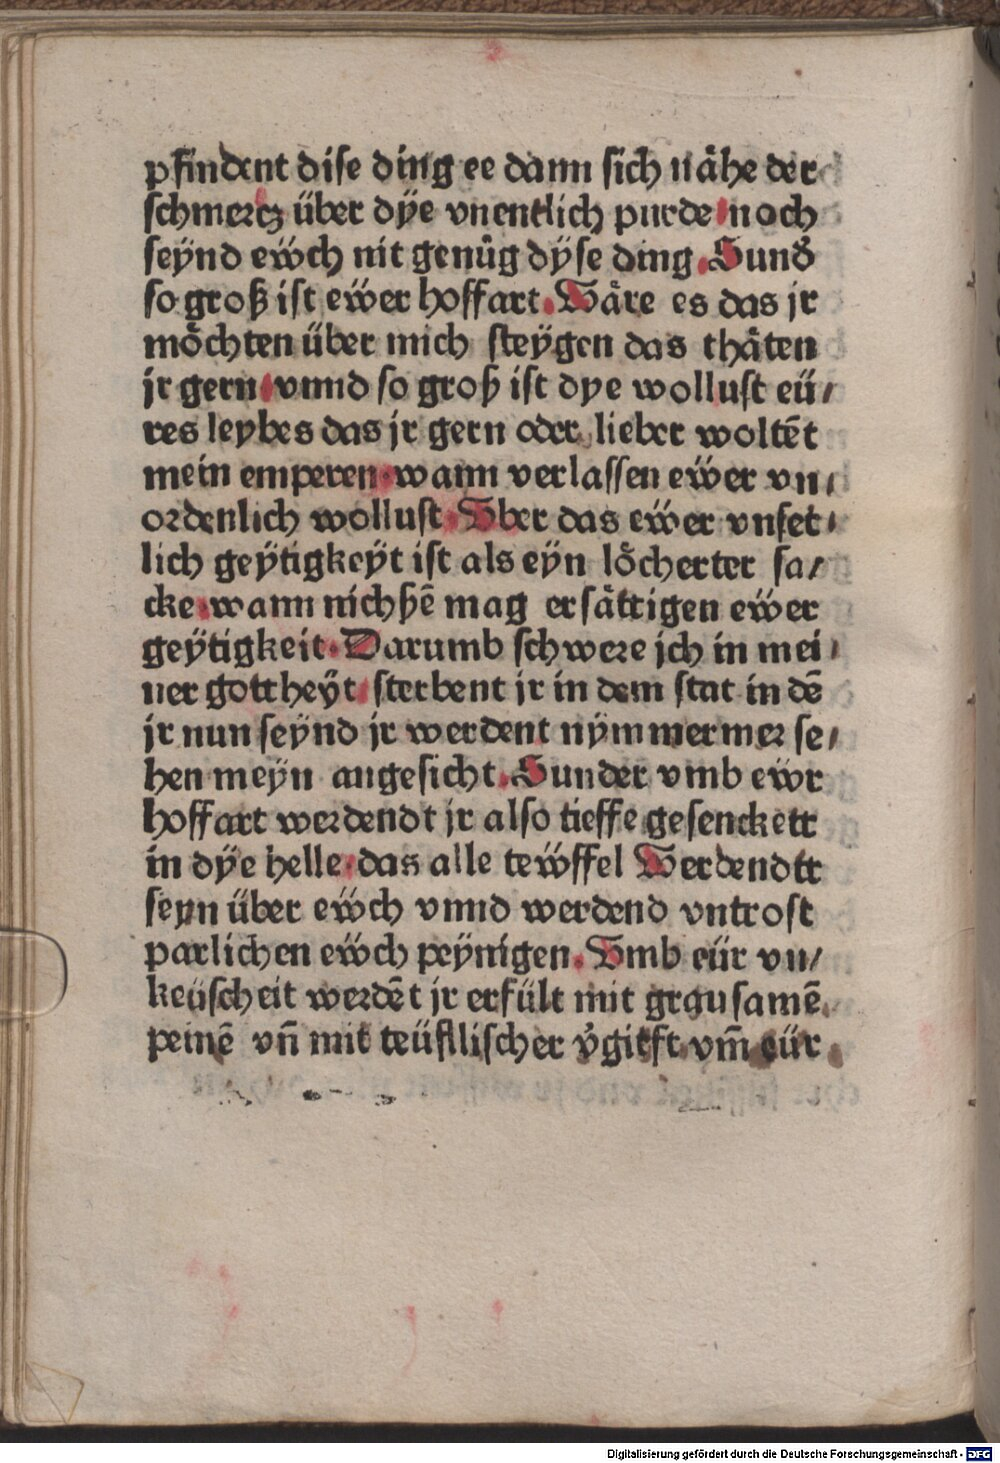 pfindent dise ding ee dann sich nåhe der
schmercz über dÿe vnentlich purde noch
seÿnd eẅch nit genůg dÿse ding. Sund̾
so groß ist eẅer hoffart. Wåre es das jr
möchten über mich steÿgen das thåten
jr gern vnnd so groß ist dye wollust eü/
res leybes das jr gern oder lieber woltēt
mein emperen. wann verlassen eẅer vn/
ordenlich wollust. Vber das eẅer vnset/
lich geÿtigkeÿt ist als eÿn löcherter sa/
cke. wann nichßē mag ersåttigen eẅer
geÿtigkeit. Darumb schwere ich in mei/
ner gottheÿt sterbent jr in dem stat in dē
jr nun seÿnd jr werdent nÿmmermer se/
hen meÿn angesicht. Sunder vmb eẅr
hoffart werdendt jr also tieffe gesenckett
in dÿe helle. das alle teẅffel Werdendtt
seyn über eẅch vnnd werdend vntrost
parlichen eẅch peÿnigen. Vmb eür vn/
keüscheit werdēt jr erfült mit grausamē
peinē vñ mit teüfllischer v̾gifft. vm̄ eür
Digitalisierung gefördert durch die Deutsche Forschungsgemeinschaft - DFG